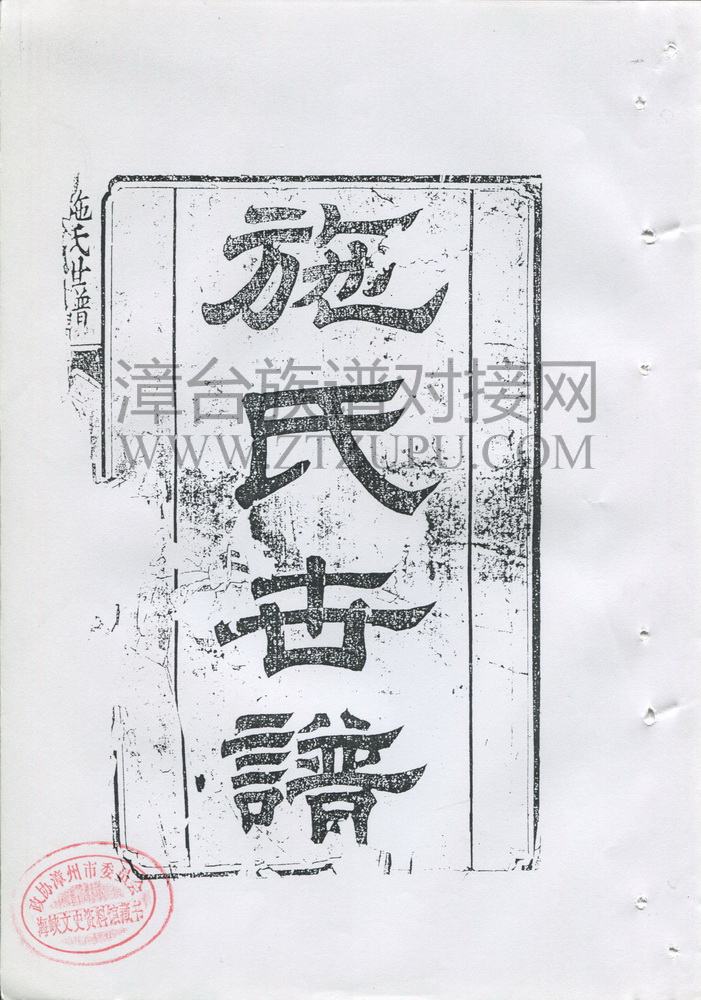 施氏世譜
施氏世譜
漳台族谱对接网
WWW.ZTZUPU.COM
政协漳州市委员会
海峡文史资料馆藏书